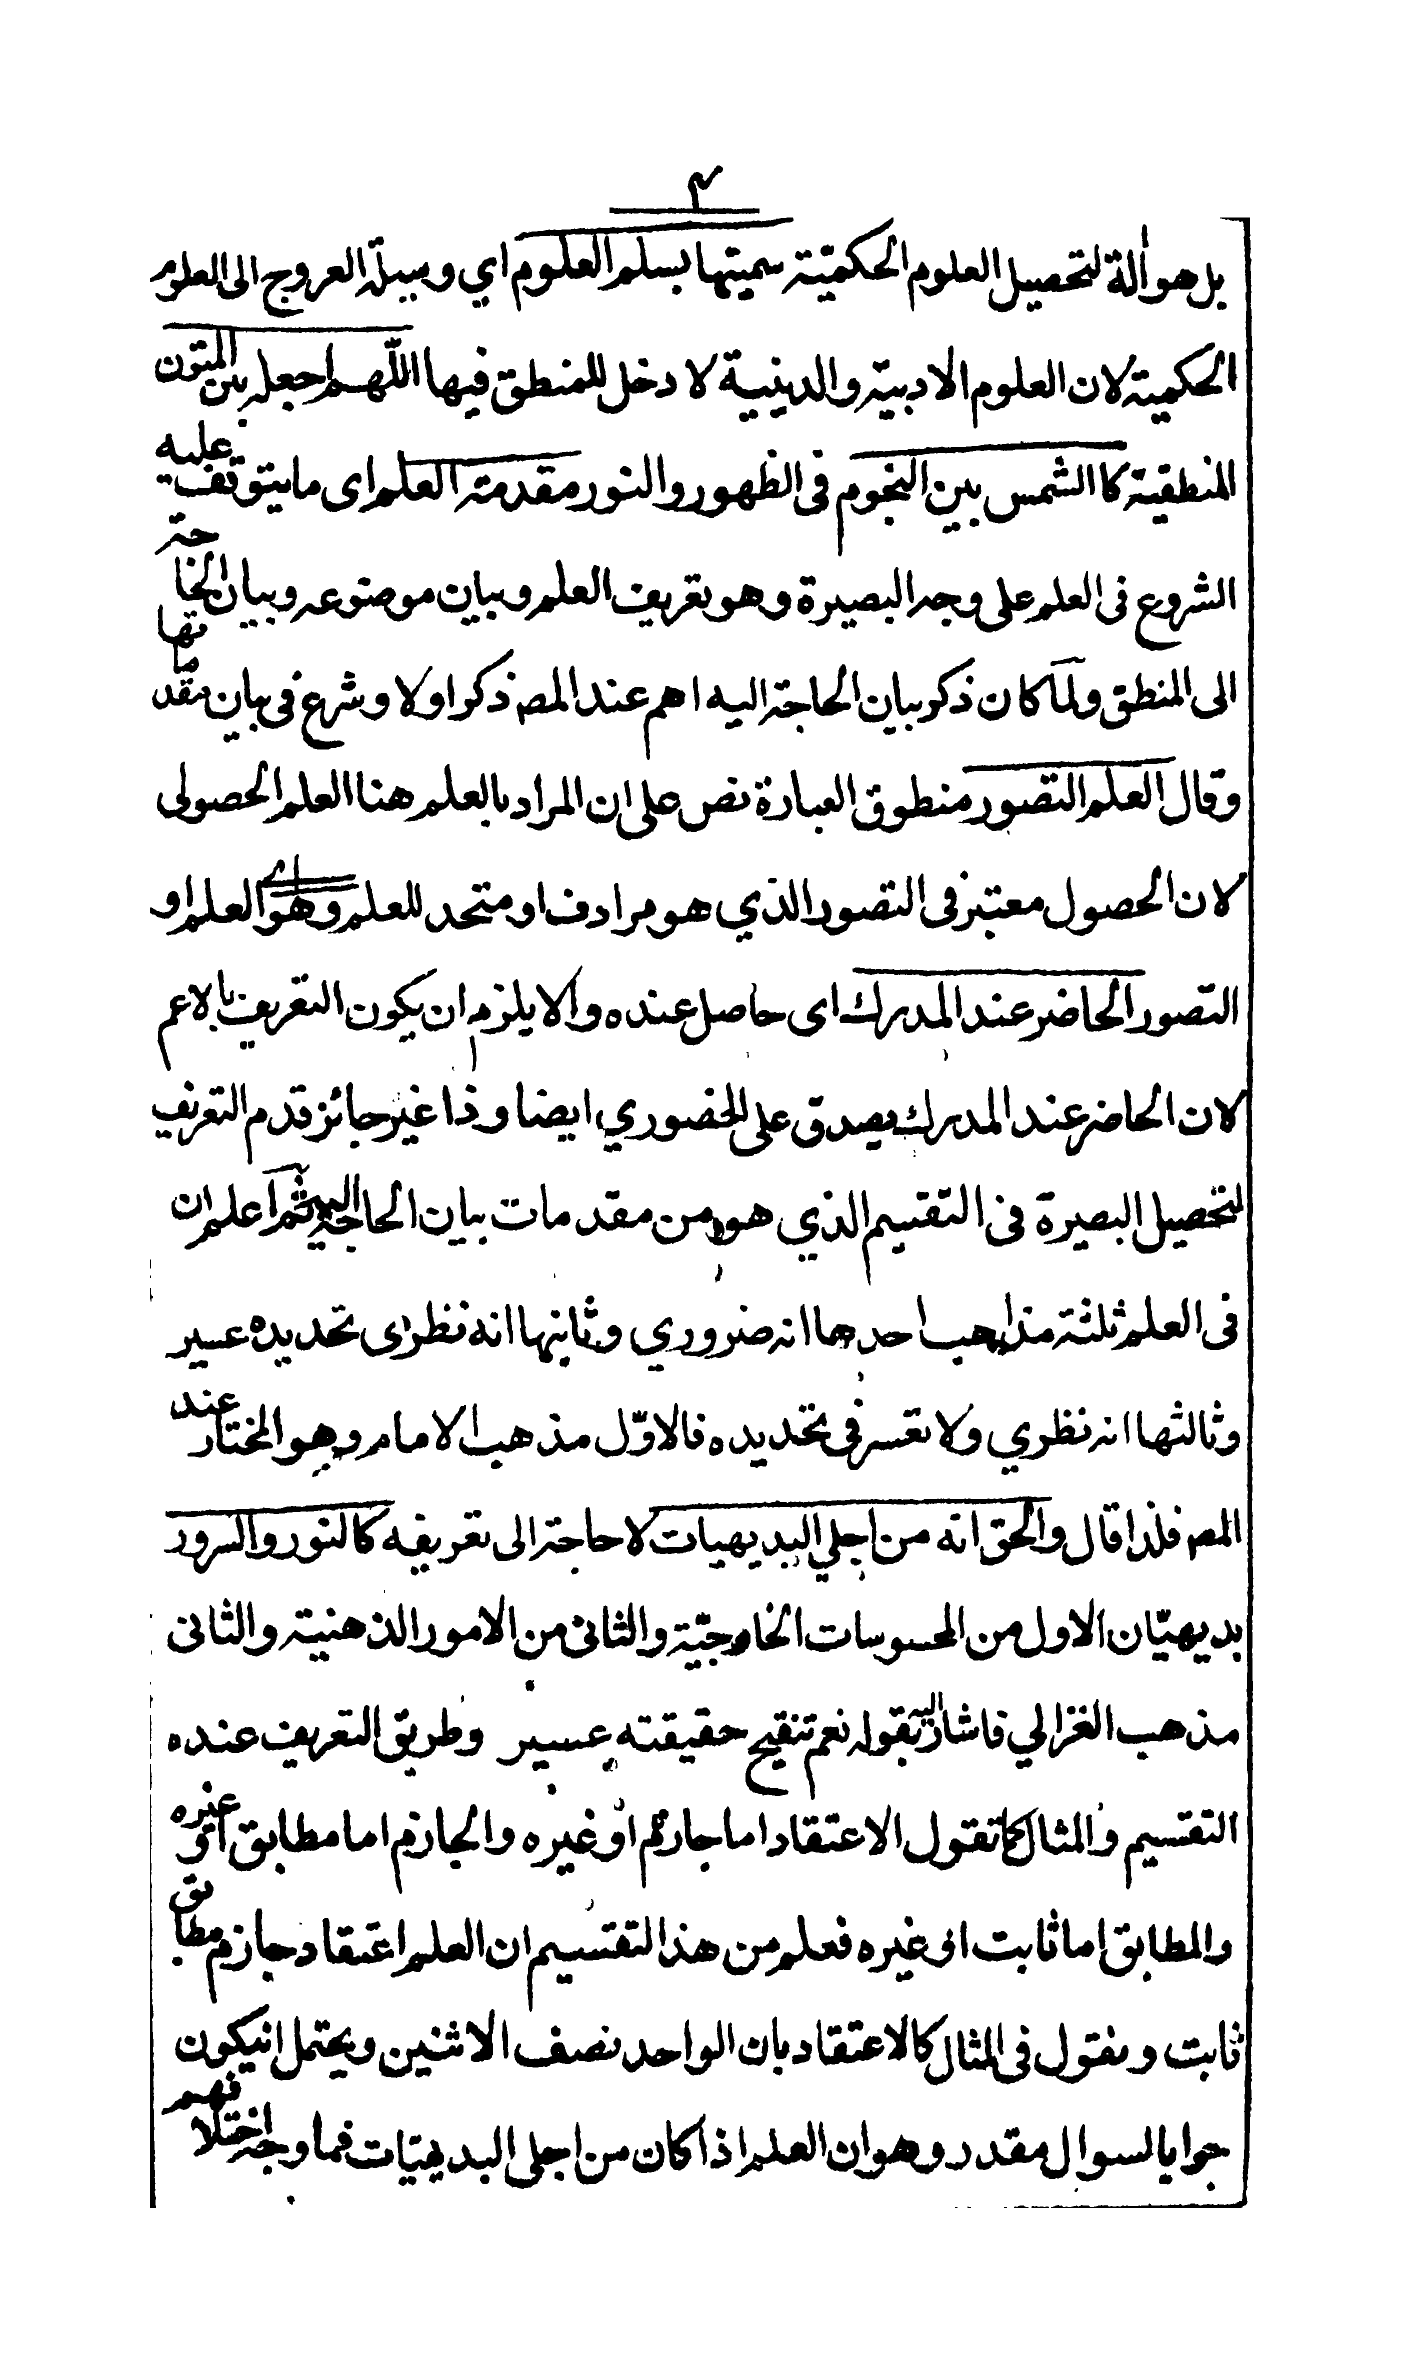 ٣
بل هو اٰلة لتحصيل العلوم الحكميّة سميتها بسلم العلوم اي وسيلة العروج الى العلوم
الحكمية لان العلوم الادبيّة والدينية لا دخل للمنطق فيها اللّهم اجعله بين المتون
المنطقية كالشمس بين النجوم فى الظهور والنور مقدمة العلم اى ما يتوقف عليه
الشروع فى العلم على وجه البصيرة وهو تعريف العلم وبيان موضوعه وبيان الحاجة
الى المنطق ولمّا كان ذكر بيان الحاجة اليه اهم عند المصـ ذكر اولا وشرع فى بيان مقدماتها
وقال العلم التصور منطوق العبارة نص على ان المراد بالعلم هنا العلم الحصولى
لان الحصول معتبر فى التصور الذي هو مرادف او متحد للعلم وهو اى العلم او
التّصور الحاضر عند المدرك اى حاصل عنده والا يلزم ان يكون التعريف بالاعم
لان الحاضر عند المدرك يصدق على الحضوري ايضا وذا غير جائز قدم التعريف
لتحصيل البصيرة فى التّقسيم الذي هو من مقدمات بيان الحاجة اليه ثم اعلم ان
فى العلم ثلثة مذاهب احدها انه ضروري وثانيها انه نظرى تحديده عسير
وثالثها انه نظري ولا تعسر فى تحديده فالاوّل مذهب الامام وهو المختار عند
المصـ فلذا قال والحق انه من اجلي البديهيات لا حاجة الى تعريفه كالنور والسرور
بديهيّان الاول من المحسوسات الخارجيّة والثانى من الامور الذهنية والثانى
مذهب الغزالي فاشار اليه بقوله نعم تنقيح حقيقته عسير وطريق التعريف عنده
التقسيم والمثال كما تقول الاعتقاد اما جازم او غيره والجازم اما مطابق او غيره
والمطابق اما ثابت او غيره فعلم من هذا التقسيم ان العلم اعتقاد جازم مطابق
ثابت وتقول فى المثال كالاعتقاد بان الواحد نصف الاثنين ويحتمل انيكون
جوابا لسوال مقدر وهو ان العلم اذا كان من اجلى البديهيّات فما وجه اختلافهم